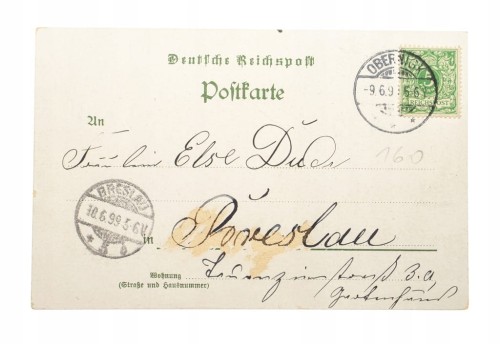 Deutsche Reichspost
Postkarte
OBERNIGK
-9.6.9
5-6
REICHSPOST
An
Fräulein Else Duda
160
BRESLAU
10.6.99.5-6V.
* 5 b
in Breslau
Wohnung
(Straße und Hausnummer)
3.a,
Gartenhaus